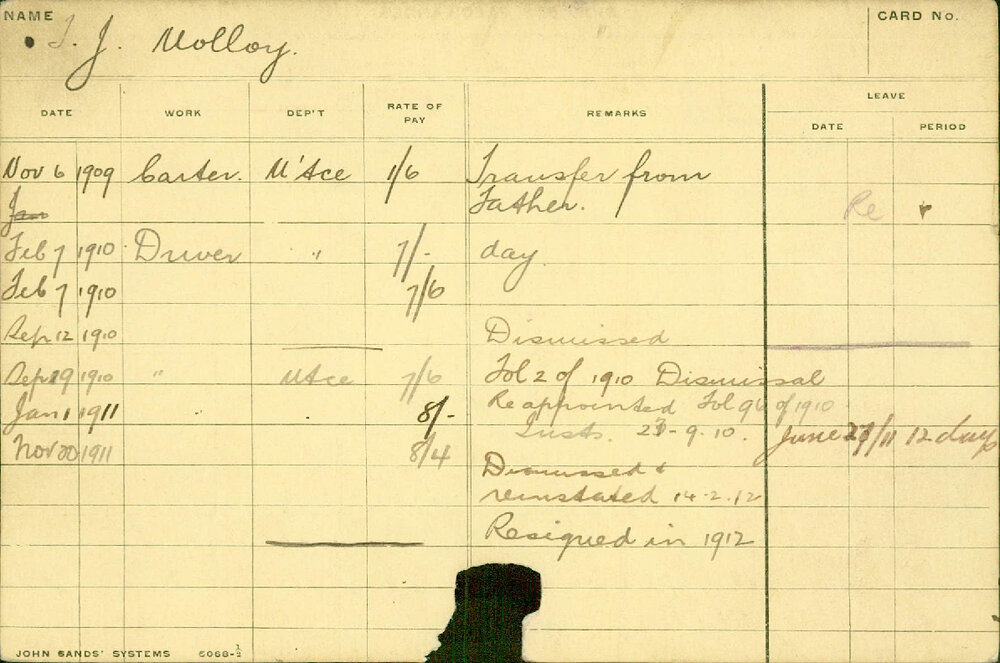 NAME
CARD No.
J. J. Molloy.
DATE WORK DEP'T RATE OF PAY REMARKS LEAVE
DATE PERIOD
Nov 6 1909 Carter. M'tce 1/6 Transfer from
Jan Father. Re
Feb 7 1910 Driver " 7/- day.
Feb 7 1910 7/6
Sep 12 1910 Dismissed
Sep 19 1910 " Mtce 7/6 Fol 2 of 1910 Dismissal
Jan 1 1911 8/- Reappointed Fol 96 of 1910
Insts. 23-9.10. June 27/11 12 days
Nov 20 1911 8/4
Dismissed &
reinstated 14-2.12
Resigned in 1912
JOHN SANDS' SYSTEMS 6068-½